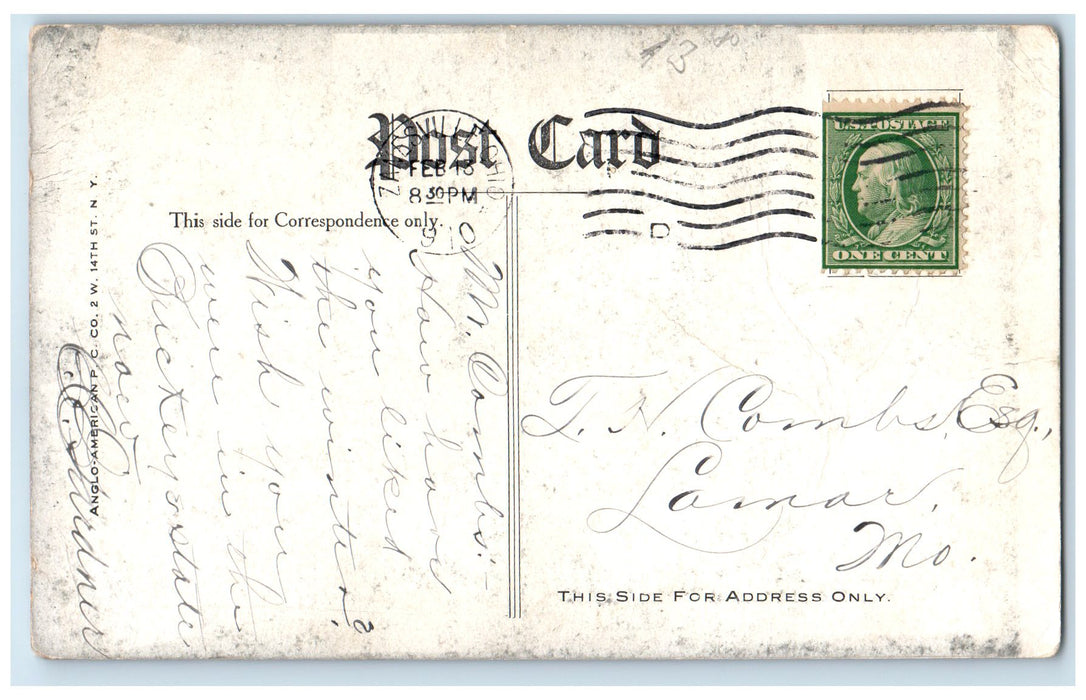 13
Post Card
ZANESVILLE, OHIO
FEB 18
8 30 PM
1910
D
U.S. POSTAGE
ONE CENT
This side for Correspondence only.
Mr. Combs:-
How have
you liked
the winter?
Wish you
were in the
Buckeye state
now
ANGLO-AMERICAN P. C. CO. 2 W. 14TH ST. N. Y.
T. N. Combs, Esq.,
Lamar,
Mo.
THIS SIDE FOR ADDRESS ONLY.